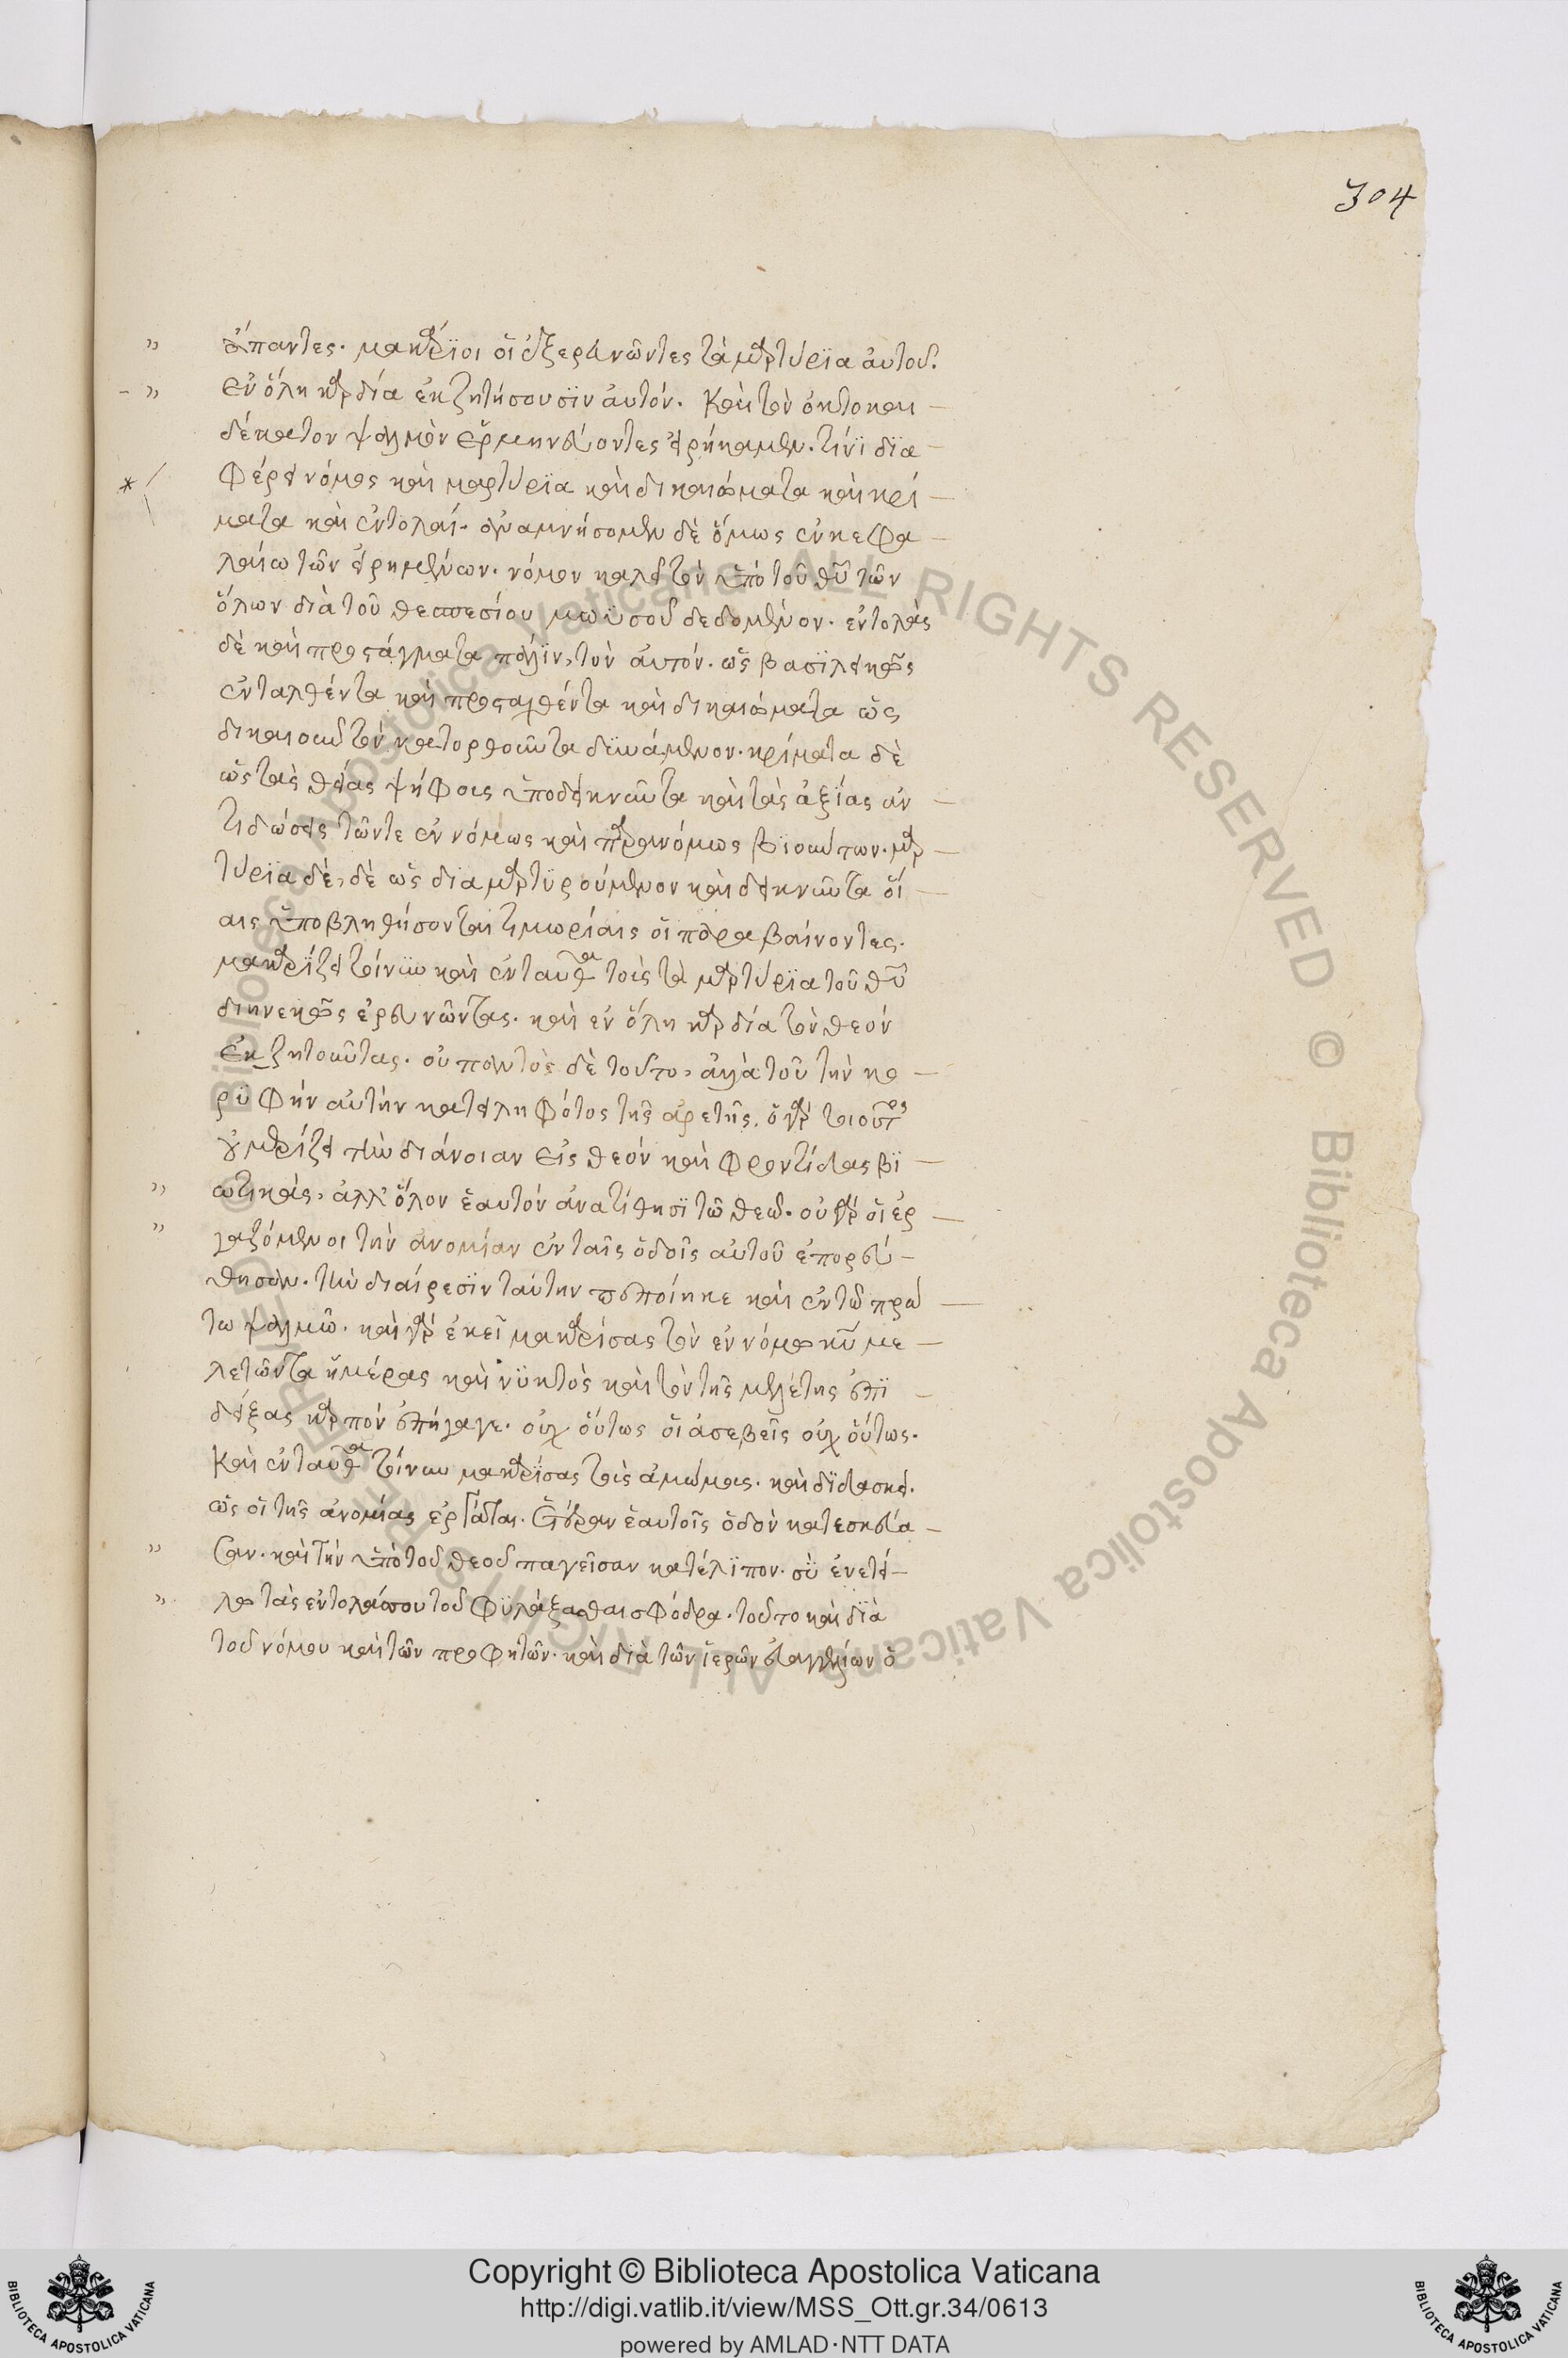 304
ἅπαντες. μακάρϊοι οἱ ἐξερευνῶντες τὰ μαρτύρϊα αὐτοῦ.
ἐν ὅλη καρδία ἐκζητήσουσϊν αὐτόν. Καὶ τὸν ὀκτοκαι
δέκατον ψαλμὸν ἑρμηνεύοντες εἰρήκαμεν. τίνϊ δϊα
φέρει νόμος καὶ μαρτύρϊα καὶ δικαιώματα καὶ κρί
ματα καὶ ἐντολαί. ἀναμνήσομεν δὲ ὅμως ἐν κεφα
λαίω τῶν εἰρημένων. νόμον καλεῖ τὸν ὑπὸ τοῦ θῦ τῶν
ὅλων διὰ τοῦ θεσπεσίου μωϋσοῦ δεδομένον. ἐντολὰς
δὲ καὶ προστάγματα πάλϊν, τὸν αὐτόν. ὡς βασϊλικῶς
ἐνταλθέντα καὶ προσταχθέντα καὶ δικαιώματα ὡς
δικαιοῦν τὸν κατορθοῦντα δϋνάμενον. κρίματα δὲ
ὡς τὰς θείας ψήφους ὑποδεικνῦντα καὶ τὰς ἀξίας ἀν
τιδώσεις τῶντε ἐννόμως καὶ παρανόμως βϊούντων. μαρ
τύρϊα δὲ, δὲ ὡς δϊαμαρτϋρούμενον καὶ δεικνῦντα οἵ
αις ὑποβληθήσονται τιμωρίαις οἱ παραβαίνοντες.
μακαρϊζει τοίνϋν καὶ ἐνταῦθα τοὺς τὰ μαρτύρϊα τοῦ θῦ
διηνεκῶς ἐρευνῶντας. καὶ ἐν ὅλη καρδία τὸν θεόν
ἐκζητοῦντας. οὐ παντὸς δὲ τοῦτο, ἀλλὰ τοῦ τὴν κο
ρϋφὴν αὐτὴν κατειληφότος τῆς ἀρετῆς. ὁ γὰρ τοιοῦτος
οὐ μερίζει τὴν διάνοιαν εἰς θεόν καὶ φροντίδας βϊ
ωτικάς, ἀλλ' ὅλον ἑαυτόν ἀνατίθησϊ τῶ θεῶ. οὐ γὰρ οἱ ἐρ
γαζόμενοι τὴν ἀνομίαν ἐν ταῖς ὁδοῖς αὐτοῦ ἐπορεύ
θησαν. τὴν διαίρεσϊν ταύτην πεποίηκε καὶ ἐν τῶ πρώ
τω ψαλμῶ. καὶ γὰρ ἐκεῖ μακαρίσας τὸν ἐν νόμω κῦ με
λετῶντα ἡμέρας καὶ νϋκτὸς καὶ τὸν τῆς μελέτης ἐπϊ
δείξας καρπόν ἐπήγαγε. οὐχ οὕτως οἱ ἀσεβεῖς οὐχ οὕτως.
Καὶ ἐνταῦθα τοίνυν μακαρϊσας τοὺς ἀμώμους. καὶ δϊδασκει.
ὡς οἱ τῆς ἀνομίας ἐργάται. ἑτέραν ἑαυτοῖς ὁδὸν κατεσκεύα
σαν. καὶ τὴν ὑπὸ τοῦ θεοῦ παγεῖσαν κατέλϊπον. σϋ ἐνετεί
λω τὰς ἐντολάς σου τοῦ φϋλάξασθαι σφόδρα. τοῦτο καὶ δϊὰ
τοῦ νόμου καὶ τῶν προφητῶν. καὶ διὰ τῶν ἱερῶν εὐαγγελίων ὁ
Copyright © Biblioteca Apostolica Vaticana
http://digi.vatlib.it/view/MSS_Ott.gr.34/0613
powered by AMLAD·NTT DATA
BIBLIOTECA APOSTOLICA VATICANA
BIBLIOTECA APOSTOLICA VATICANA
© Biblioteca Apostolica Vaticana ALL RIGHTS RESERVED © Biblioteca Apostolica Vaticana ALL RIGHTS RESERVED